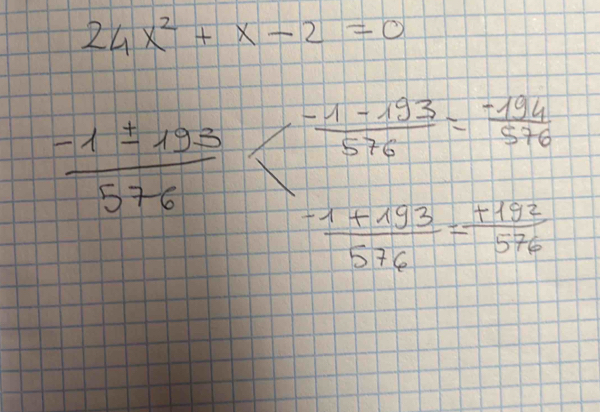 24x² + x - 2 = 0
-1 ± 193 / 576
-1 - 193 / 576 = -194 / 576
-1 + 193 / 576 = +192 / 576